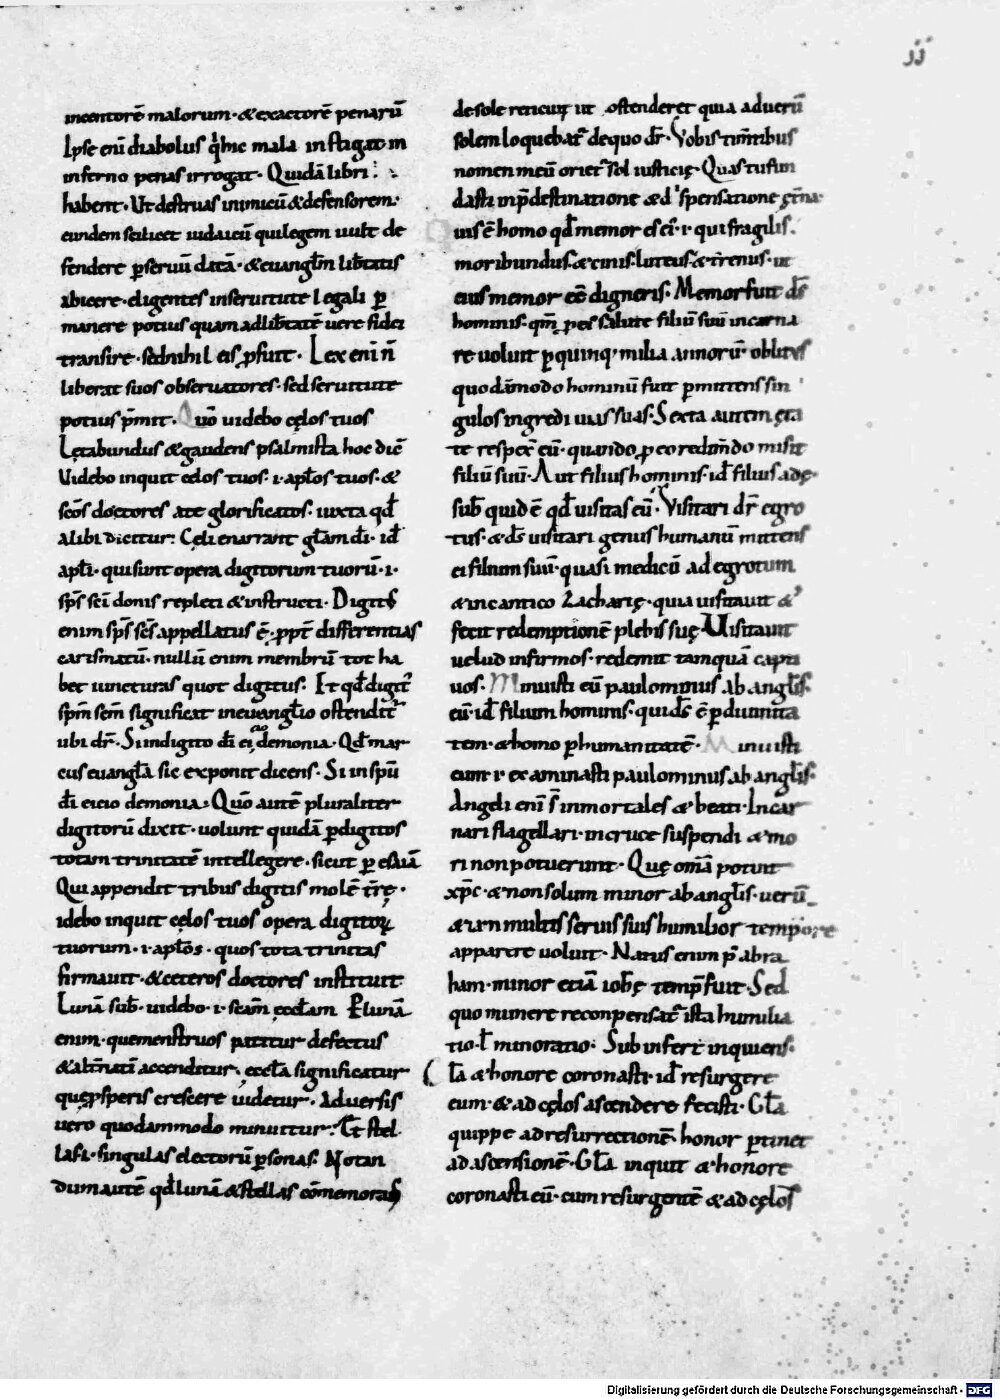 ıȷ
incentorē malorum· & exactorē penarū
Ipse eni diabolus q̇ hic mala instigat in
inferno penas irrogat· Quidā libri
habent· Ut destruas inimicū & defensorem·
eundem scilicet iudaicū qui legem uult de
fendere p̱ seruū datā· & euangl̄m lib̄tatis
abicere· eligentes in seruitute legali p̱
manere potius quam ad lib̄tatē uere fidei
transire· sed nihil eis ꝓfuit· Lex eni n̄
liberat suos obseruatores· sed seruitute
potius p̄mit· Quō uidebo cęlos tuos
Lętabundus & gaudens psalmista hoc dic̄
Uidebo inquit celos tuos· i· ap̄los tuos· &
sc̄os doctores a te glorificatos· iuxta qđ
alibi dicitur: Cęli enarrant gl̄am dī· id̄
apl̄i· qui sunt opera digitorum tuorū· i·
sp̄s sc̄i donis repleti & instructi· Digitꝰ
enim sp̄s sc̄s appellatus ē· ꝓpt̄ differentias
carismatū· nullū enim membrū tot ha
bet iuncturas quot digitus· Et qđ digit᷒
sp̄m sc̄m significat in euangl̄io ostendit᷒
ubi dr̄· Si in digito dī eicio demonia· Qđ mar
cus euangl̄a sic exponit dicens· Si in sp̄u
dī eicio demonia· Quō autē pluraliter
digitorū dixit· uolunt quidā p̱ digitos
totam trinitatē intellegere· sicut p̱ esaiā
Qui appendit tribus digitis molē tr̄ę·
idebo inquit cęlos tuos opera digitoꝝ
tuorum· i· ap̄los· quos tota trinitas
firmauit· & ceteros doctores instituit
Lunā sub̄· uidebo· i· sc̄am eccl̄am P̱ lunā
enim· que menstruos patitur defectus
& alt̄natī accenditur· eccl̄a significatur
quę ꝓsperis crescere uidetur· Aduersis
uero quodammodo minuitur· Et stel
las· i· singulas electorū p̱sonas· Notan
dum autē qđ lunā & stellas cōmemorāꝰ
de sole reticuit ut ostenderet quia aduerū
solem loquebat᷒ de quo dr̄· Vobis tim̄tibus
nomen meū oriet᷒ sol iusticię· Quas tu fun
dasti in p̄destinatione & dispensatione ęt̄na·
uis ē homo qđ memor es ei· i· qui fragilis·
moribundus· & cinis· luteus· & tr̄enus· ut
eius memor eē digneris· Memor fuit ds̄
hominis· qm̄ ꝓ eis salute filiū suū incarna
re uoluit p̱ quinq; milia annorū· oblitꝰ
quodāmodo hominū fuit p̱mittens sin
gulos ingredi uias suas· Sexta autem ęta
te respex̄ eū· quando ꝓ eo redim̄do misit
filiū suū· Aut filius hominis· id̄ filius adę·
sub̄ quid ē qđ uisitas eū· Visitari dr̄ egro
tus· & ds̄ uisitari genus humanū mittens
ei filium suū· quasi medicū ad egrotum
& in cantico Zacharię· quia uisitauit &
fecit redemptionē plebis suę Uisitauit
uelud infirmos· redemit tamquā capti
uos· Minuisti eū paulo minus ab angl̄is·
eū· id̄ filium hominis· qui ds̄ ē p̱ diuinita
tem· & homo p̱ humanitatē· Minuisti
eum· i· examinasti paulo minus ab angl̄is·
Angeli eni s̄ inmortales & beati· Incar
nari flagellari· in cruce suspendi & mo
ri non potuerunt· Quę om̄ia potuit
xp̄c· & non solum minor ab angl̄is· uerū
& i r n multis seruis suis humilior tempore
apparere uoluit· Natus enim p̄ abra
ham· minor etiā iobę temp̄ fuit· Sed
quo munere reconpensat᷒ ista humilia
tio· l̄ minoratio· Sub infert inquiens·
Gl̄a & honore coronasti· id̄ resurgere
eum· & ad cęlos ascendere fecisti· Gl̄a
quippe ad resurrectionē· honor p̱tinet
ad ascensionē· Gl̄a inquit & honore
coronasti eū· eum resurgentē & ad cęlos
Digitalisierung gefördert durch die Deutsche Forschungsgemeinschaft - DFG